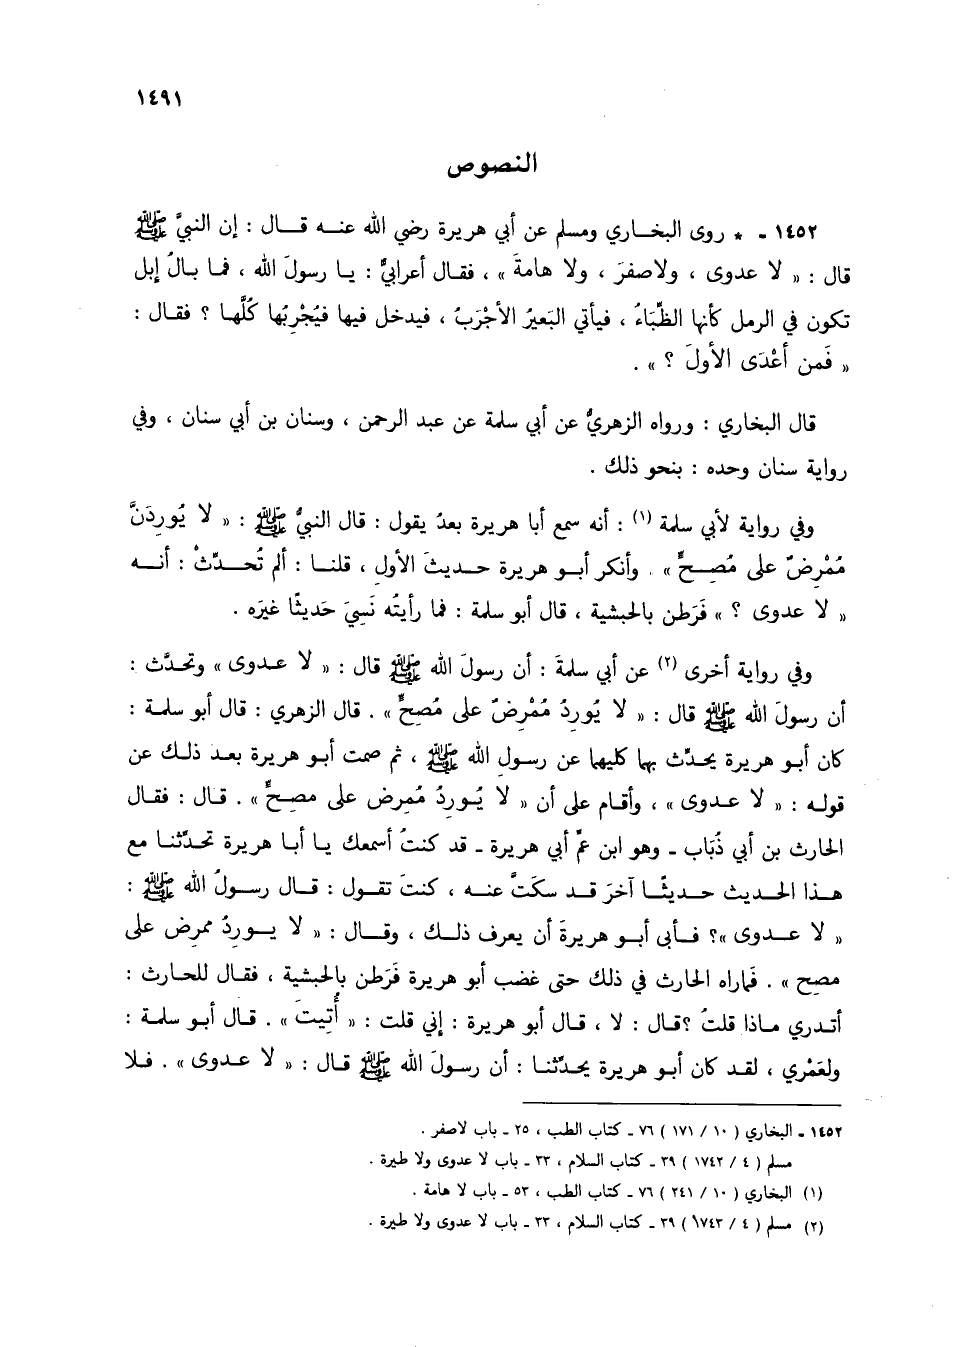 ١٤٩١
النصوص
١٤٥٢ - * روى البخاري ومسلم عن أبي هريرة رضي الله عنه قال : إن النبيَّ ﷺ
قال : « لا عدوى ، ولاصفرَ ، ولا هامةَ » ، فقال أعرابيٌّ : يا رسولَ الله ، فما بالُ إبل
تكون في الرمل كأنها الظِّبَاءُ ، فيأتي البَعيرُ الأجْرَبُ ، فيدخل فيها فيُجْرِبُها كُلَّها ؟ فقال :
« فَمن أعْدَى الأولَ ؟ » .
قال البخاري : ورواه الزهريُّ عن أبي سلمة عن عبد الرحمن ، وسنان بن أبي سنان ، وفي
رواية سنان وحده : بنحو ذلك .
وفي رواية لأبي سلمة (١) : أنه سمع أبا هريرة بعدُ يقول : قال النبيُّ ﷺ : « لا يُورِدَنَّ
مُمْرِضٌ على مُصِحٍّ » . وأنكر أبو هريرة حديثَ الأول ، قلنا : ألم تُحدِّثْ : أنه
« لا عدوى ؟ » فَرَطن بالحبشية ، قال أبو سلمة : فما رأيتُه نَسِيَ حَديثًا غيرَه .
وفي رواية أخرى (٢) عن أبي سلمةَ : أن رسولَ الله ﷺ قال : « لا عدوى » وتحدَّث :
أن رسولَ الله ﷺ قال : « لا يُورِدُ مُمْرِضٌ على مُصِحٍّ » . قال الزهري : قال أبو سلمة :
كان أبو هريرة يحدِّث بهما كليهما عن رسول الله ﷺ ، ثم صمت أبو هريرة بعد ذلك عن
قوله : « لا عدوى » ، وأقام على أن « لا يُوردُ مُمرِض على مصحٍّ » . قال : فقال
الحارث بن أبي ذُبَاب - وهو ابن عمِّ أبي هريرة - قد كنتُ أسمعك يا أبا هريرة تحدِّثنا مع
هذا الحديث حديثًا آخرَ قد سكَتَّ عنه ، كنتَ تقول : قال رسولُ الله ﷺ :
« لا عدوى »؟ فأبى أبو هريرةَ أن يعرف ذلك ، وقال : « لا يوردُ ممرض على
مصح » . فماراه الحارث في ذلك حتى غضب أبو هريرة فَرَطن بالحبشية ، فقال للحارث :
أتدري ماذا قلتُ ؟قال : لا ، قال أبو هريرة : إني قلت : « أُتِيتَ » . قال أبو سلمة :
ولعَمْري ، لقد كان أبو هريرة يحدِّثنا : أن رسولَ الله ﷺ قال : « لا عدوى » . فلا
١٤٥٢ - البخاري ( ١٠ / ١٧١ ) ٧٦ - كتاب الطب ، ٢٥ - باب لاصفر .
مسلم ( ٤ / ١٧٤٢ ) ٣٩ - كتاب السلام ، ٣٣ - باب لا عدوى ولا طيرة .
(١) البخاري ( ١٠ / ٢٤١ ) ٧٦ - كتاب الطب ، ٥٣ - باب لا هامة .
(٢) مسلم ( ٤ / ١٧٤٣ ) ٣٩ - كتاب السلام ، ٣٣ - باب لا عدوى ولا طيرة .